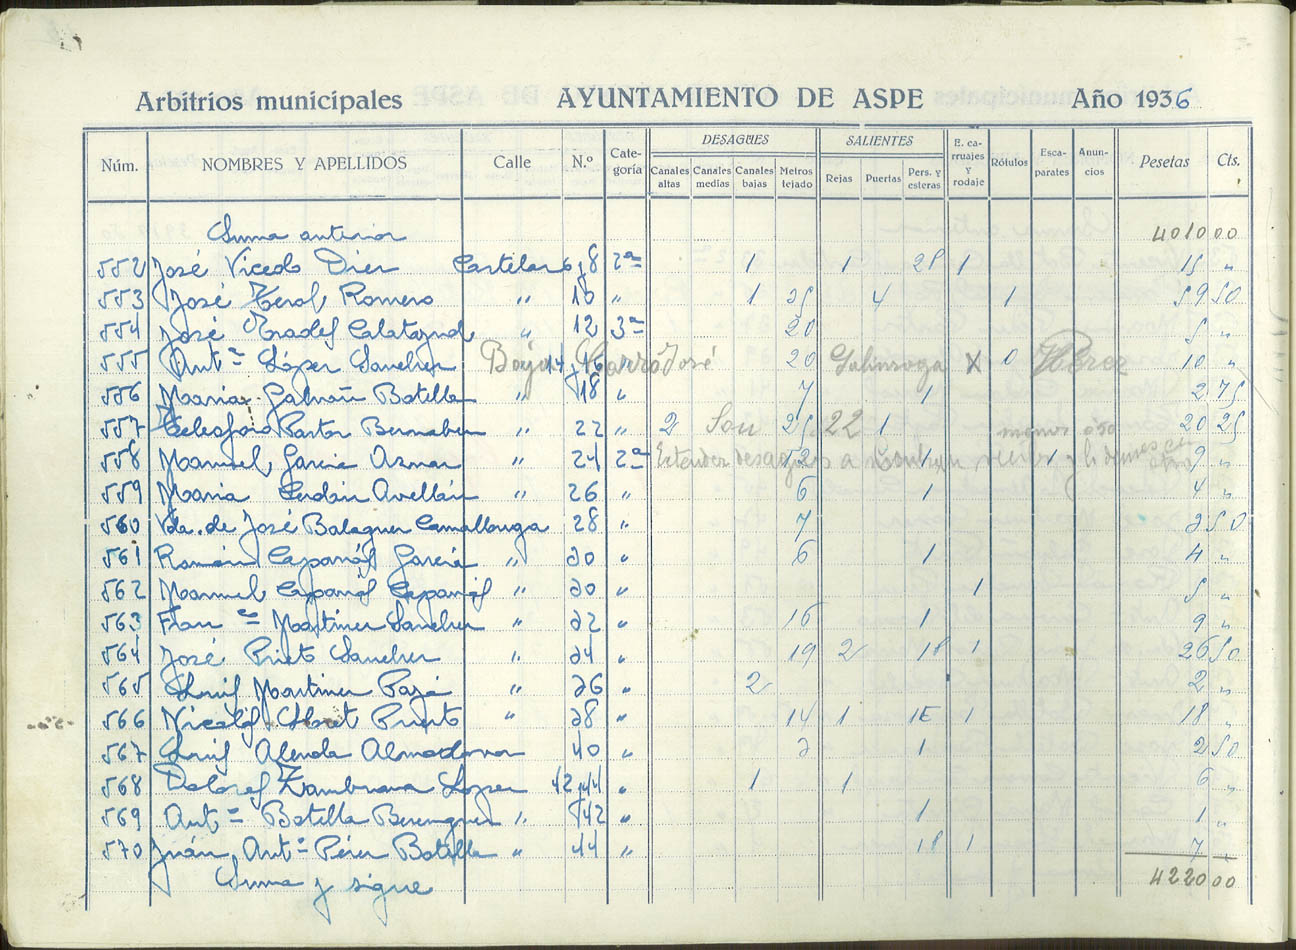 Arbitrios municipales AYUNTAMIENTO DE ASPE Año 1936
Núm. NOMBRES Y APELLIDOS Calle N.º Cate-goría DESAGÜES Canales altas Canales medias Canales bajas Metros tejado SALIENTES Rejas Puertas Pers. y esteras E. ca-rruajes y rodaje Rótulos Esca-parates Anun-cios Pesetas Cts.
Suma anterior 4010 00
552 José Vicedo Dier Castelar 6 y 8 2ª 1 1 2P 1 15 "
553 José Terol Romero " 10 " 1 25 4 1 59 50
554 José Pradel Calatayud " 12 3ª 20 5 "
555 Antº López Sanchez 14 y 16 " 20 0 10 "
José Galinsoga X Pérez
556 Maria Galvañ Botella " 18 " 7 1 2 75
557 Telesforo Pastor Bernabeu " 22 " 2 25 1 20 25
San 22
558 Manuel Garcia Aznar " 24 2ª 52 1 1 9 "
desagües a
559 Maria Cerdán Avellán " 26 " 6 1 4 "
560 Vda. de José Balaguer Camallonga 28 " 7 3 50
561 Román Españól García " 30 " 6 1 4 "
562 Manuel Españól Españól " 30 " 1 5 "
563 Franco Martinez Sánchez " 32 " 16 1 9 "
564 José Prieto Sanchez " 34 " 19 2 1P 1 26 50
565 Luis Martinez Pajá " 36 " 2 2 "
566 Nicolás Lloret Puerto " 38 " 14 1 1E 1 18 "
567 Luis Alenda Almodovar 40 " 3 1 2 50
568 Dolores Zambrana López 42 y 44 " 1 1 6 "
569 Antº Botella Berenguer " 42 " 1 1 "
570 Juán Antº Pérez Botella " 44 " 1P 1 7 "
Suma y sigue 4220 00